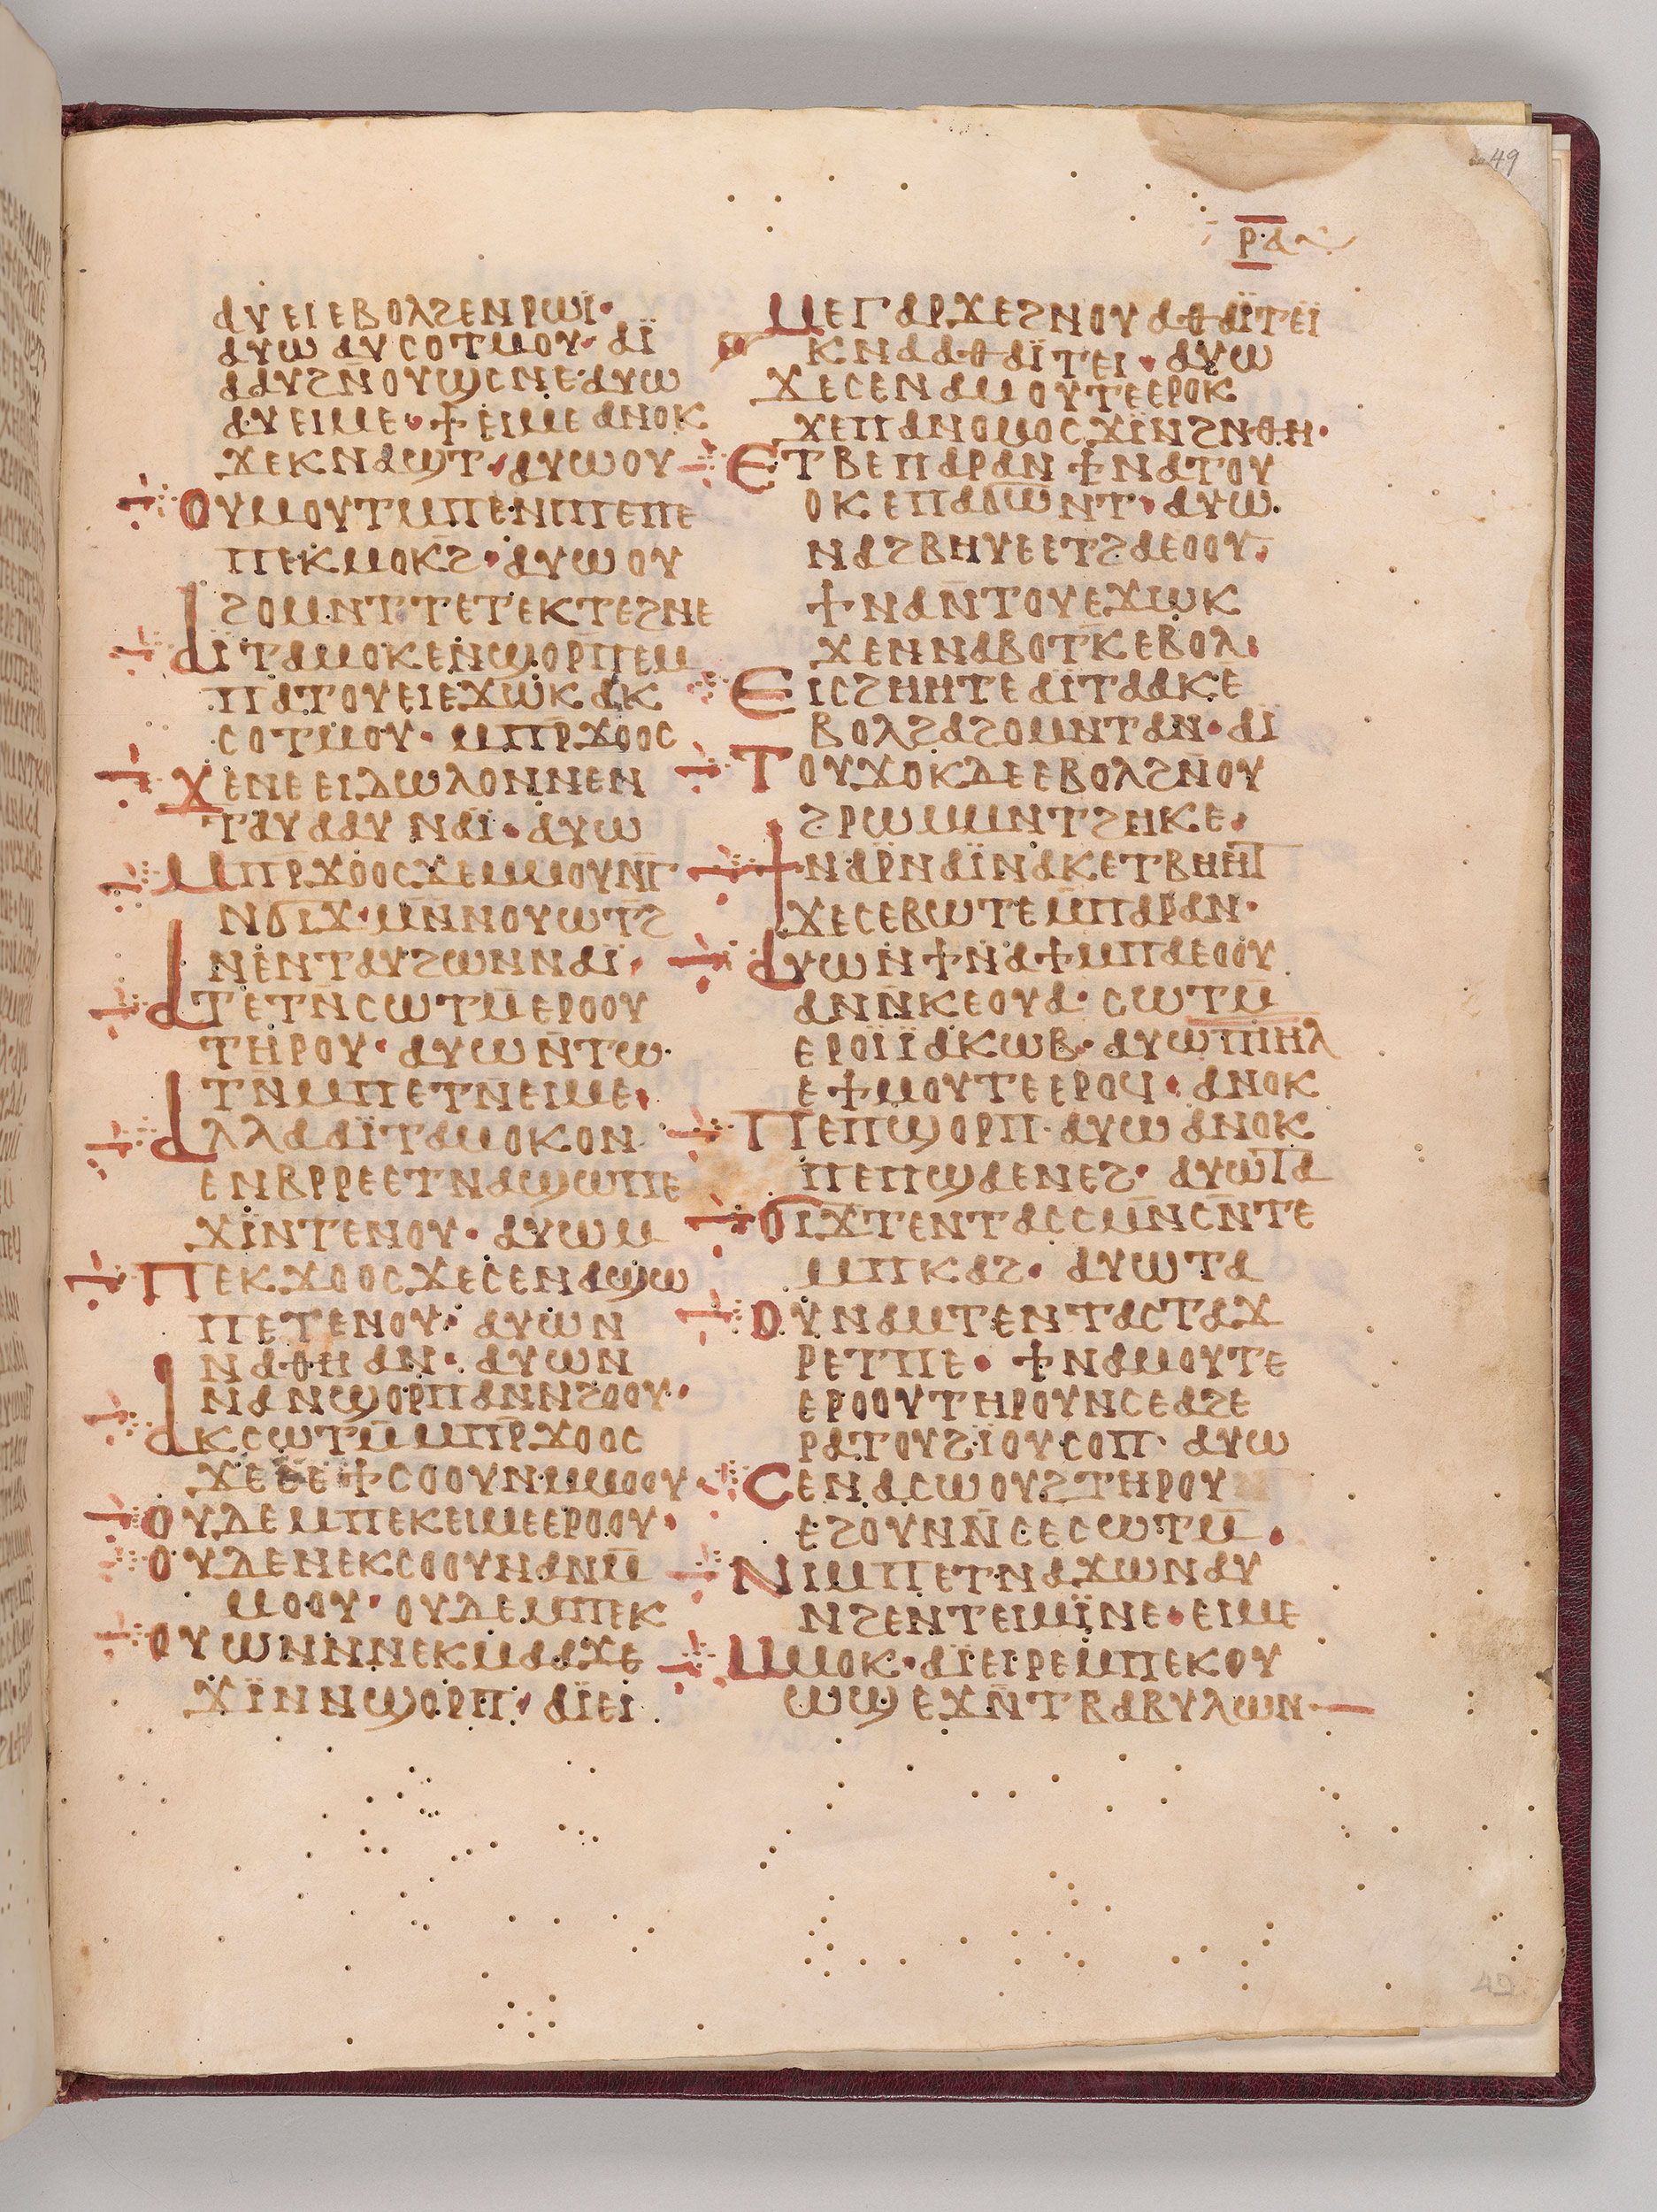 49
ⲣⲁ
ⲁⲩⲉⲓⲉⲃⲟⲗϩⲉⲛⲣⲱⲓ̈·
ⲁⲩⲱⲁⲩⲥⲟⲧⲙⲟⲩ· ⲁⲓ̈
ⲁⲁⲩϩⲛⲟⲩϣⲥⲛⲉ·ⲁⲩⲱ
ⲁⲩⲉⲓⲙⲉ· ϯⲉⲓⲙⲉⲁⲛⲟⲕ
ϫⲉⲕⲛⲁϣⲧ·ⲁⲩⲱⲟⲩ
ⲟⲩⲙⲟⲩⲧⲙⲡⲉⲛⲓⲡⲉⲡⲉ
ⲡⲉⲕⲙⲟⲕϩ·ⲁⲩⲱⲟⲩ
ϩⲟⲙⲛⲧⲧⲉⲧⲉⲕⲧⲉϩⲛⲉ
ⲁⲓ̈ⲧⲁⲙⲟⲕⲉⲛϣⲟⲣⲡⲉⲙ
ⲡⲁⲧⲟⲩⲉⲓⲉϫⲱⲕⲁⲕ
ⲥⲟⲧⲙⲟⲩ· ⲙⲡⲣϫⲟⲟⲥ
ϫⲉⲛⲉⲉⲓⲇⲱⲗⲟⲛⲛⲉⲛ
ⲧⲁⲩⲁⲁⲩⲛⲁⲓ̈·ⲁⲩⲱ
ⲙⲡⲣϫⲟⲟⲥϫⲉⲙⲙⲟⲩⲛⲅ
ⲛϭⲓϫ·ⲙⲛⲛⲟⲩⲱⲧϩ
ⲛⲉⲛⲧⲁⲩϩⲱⲛⲛⲁⲓ̈·
ⲁⲧⲉⲧⲛ̄ⲥⲱⲧⲙ̄ⲉⲣⲟⲟⲩ
ⲧⲏⲣⲟⲩ·ⲁⲩⲱⲛ̄ⲧⲱ
ⲧⲛⲙⲡⲉⲧⲛ̄ⲉⲓⲙⲉ·
ⲁⲗⲗⲁⲁⲓ̈ⲧⲁⲙⲟⲕⲟⲛ
ⲉⲛⲃⲣⲣⲉⲉⲧⲛⲁϣⲱⲡⲉ
ϫⲓ̈ⲛⲧⲉⲛⲟⲩ·ⲁⲩⲱⲙ
ⲡⲉⲕϫⲟⲟⲥϫⲉⲥⲉⲛⲁϣⲱ
ⲡⲉⲧⲉⲛⲟⲩ·ⲁⲩⲱⲛ
ⲛⲁⲑⲏⲁⲛ·ⲁⲩⲱⲛ
ⲛⲁⲛϣⲟⲣⲡⲁⲛⲛϩⲟⲟⲩ·
ⲁⲕⲥⲱⲧⲙ̄ⲙⲡⲣ̄ϫⲟⲟⲥ
ϫⲉⲉⲉϯⲥⲟⲟⲩⲛⲙⲙⲟⲟⲩ
ⲟⲩⲇⲉⲙⲡⲉⲕⲉⲓⲙⲉⲉⲣⲟⲟⲩ·
ⲟⲩⲇⲉⲛⲉⲕⲥⲟⲟⲩⲛⲁⲛⲙ̄
ⲙⲟⲟⲩ·ⲟⲩⲇⲉⲙⲡⲉⲕ
ⲟⲩⲱⲛⲛⲛⲉⲕⲙⲁⲁϫⲉ
ϫⲓ̈ⲛⲛϣⲟⲣⲡ·ⲁⲓ̈ⲉⲓ
ⲙⲉⲅⲁⲣϫⲉϩⲛⲟⲩⲁⲑⲁⲓ̈ⲧⲉⲓ̈
ⲕⲛⲁⲁⲑⲁⲓ̈ⲧⲉⲓ·ⲁⲩⲱ
ϫⲉⲥⲉⲛⲁⲙⲟⲩⲧⲉⲉⲣⲟⲕ
ϫⲉⲡⲁⲛⲟⲙⲟⲥϫⲓ̈ⲛϩⲛⲑⲏ·
ⲉⲧⲃⲉⲡⲁⲣⲁⲛϯⲛⲁⲧⲟⲩ
ⲟⲕⲉⲡⲁϭⲱⲛⲧ·ⲁⲩⲱ
ⲛⲁϩⲃⲏⲩⲉⲉⲧϩⲁⲉⲟⲟⲩ·
ϯⲛⲁⲛ̄ⲧⲟⲩⲉϫⲱⲕ
ϫⲉⲛⲛⲁⲃⲟⲧⲕ̄ⲉⲃⲟⲗ·
ⲉⲓⲥϩⲏⲏⲧⲉⲁⲓ̈ⲧⲁⲁⲕⲉ
ⲃⲟⲗϩⲁϩⲟⲙⲛⲧⲁⲛ·ⲁⲓ̈
ⲧⲟⲩϫⲟⲕⲇⲉⲉⲃⲟⲗϩⲛ̄ⲟⲩ
ϩⲣⲱⲙⲙⲛⲧϩⲏⲕⲉ·
ϯⲛⲁⲣ̄ⲛⲁⲓ̈ⲛⲁⲕⲉⲧⲃⲏⲏⲧ
ϫⲉⲥⲉⲃⲱⲧⲉⲙⲡⲁⲣⲁⲛ·
ⲁⲩⲱⲛϯⲛⲁϯⲙⲡⲁⲉⲟⲟⲩ
ⲁⲛⲛ̄ⲕⲉⲟⲩⲁ·ⲥⲱⲧⲙ̄
ⲉⲣⲟⲓ̈ⲓ̈ⲁⲕⲱⲃ·ⲁⲩⲱⲡⲓⲏⲗ
ⲉϯⲙⲟⲩⲧⲉⲉⲣⲟϥ·ⲁⲛⲟⲕ
ⲡⲉⲡϣⲟⲣⲡ·ⲁⲩⲱⲁⲛⲟⲕ
ⲡⲉⲡϣⲁⲉⲛⲉϩ·ⲁⲩⲱⲧⲁ
ϭⲓϫⲧⲉⲛⲧⲁⲥⲥⲙ̄ⲛⲥⲛ̄ⲧⲉ
ⲙⲡⲕⲁϩ·ⲁⲩⲱⲧⲁ
ⲟⲩⲛⲁⲙⲧⲉⲛⲧⲁⲥⲧⲁϫ
ⲣⲉⲧⲡⲉ·ϯⲛⲁⲙⲟⲩⲧⲉ
ⲉⲣⲟⲟⲩⲧⲏⲣⲟⲩⲛⲥⲉⲁϩⲉ
ⲣⲁⲧⲟⲩϩⲓ̈ⲟⲩⲥⲟⲡ·ⲁⲩⲱ
ⲥⲉⲛⲁⲥⲱⲟⲩϩⲧⲏⲣⲟⲩ
ⲉϩⲟⲩⲛⲛ̄ⲥⲉⲥⲱⲧⲙ̄·
ⲛⲓⲙⲡⲉⲧⲛⲁϫⲱⲛⲁⲩ
ⲛϩⲉⲛⲧⲉⲓⲙⲓ̈ⲛⲉ·ⲉⲓⲙⲉ
ⲙⲙⲟⲕ·ⲁⲓ̈ⲉⲓⲣⲉⲙⲡⲉⲕⲟⲩ
ⲱϣⲉϫⲛ̄ⲧⲃⲁⲃⲩⲗⲱⲛ